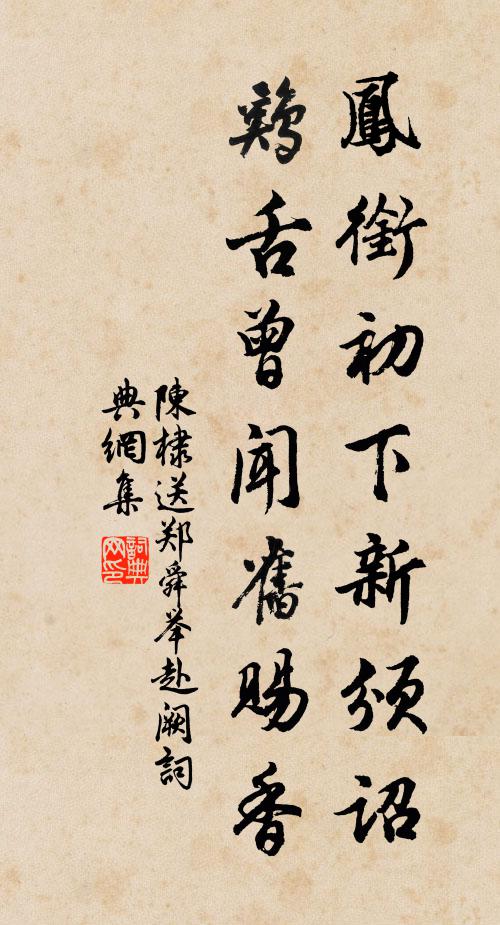 鳳銜初下新頒詔
鷄舌曾聞舊賜香
陳棣送郑舜举赴阙詞
典網集
詞典网印